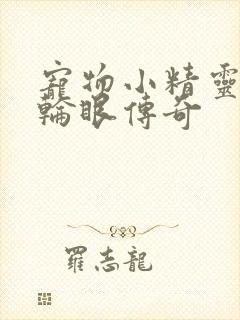 寵物小精靈
輪眼傳奇
羅志龍